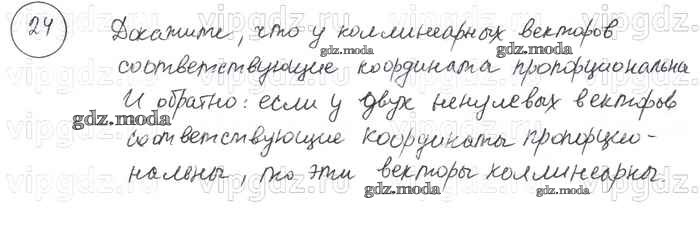 24
Докажите, что у коллинеарных векторов
соответствующие координата пропорциональна
И обратно: если у двух ненулевых векторов
соответствующие координаты пропорцио-
нальны, то эти векторы коллинеарны.
gdz.moda
gdz.moda
gdz.moda
gdz.moda
gdz.moda
gdz.moda
gdz.moda
gdz.moda
gdz.moda